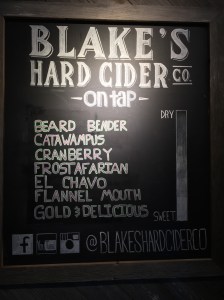 BLAKE'S
HARD CIDER CO.
- on tap -
DRY
BEARD BENDER
CATAWAMPUS
CRANBERRY
FROSTAFARIAN
EL CHAVO
FLANNEL MOUTH
GOLD & DELICIOUS
SWEET
f
@BLAKESHARDCIDERCO